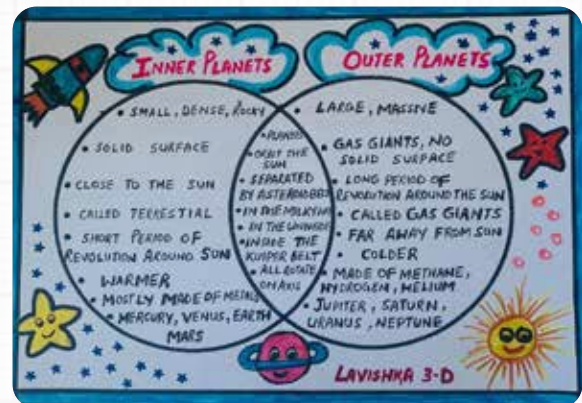 INNER PLANETS
OUTER PLANETS
• SMALL, DENSE, ROCKY
• SOLID SURFACE
• CLOSE TO THE SUN
• CALLED TERRESTIAL
• SHORT PERIOD OF
REVOLUTION AROUND SUN
• WARMER
• MOSTLY MADE OF METALS
• MERCURY, VENUS, EARTH
MARS
• PLANETS
• ORBIT THE
SUN
• SEPARATED
BY ASTEROID BELT
• IN THE MILKYWAY
• IN THE UNIVERSE
• INSIDE THE
KUIPER BELT
• ALL ROTATE
ON AXIS
• LARGE, MASSIVE
• GAS GIANTS, NO
SOLID SURFACE
• LONG PERIOD OF
REVOLUTION AROUND THE SUN
• CALLED GAS GIANTS
• FAR AWAY FROM SUN
• COLDER
• MADE OF METHANE,
HYDROGEN, HELIUM
• JUPITER, SATURN,
URANUS, NEPTUNE
LAVISHKA 3-D